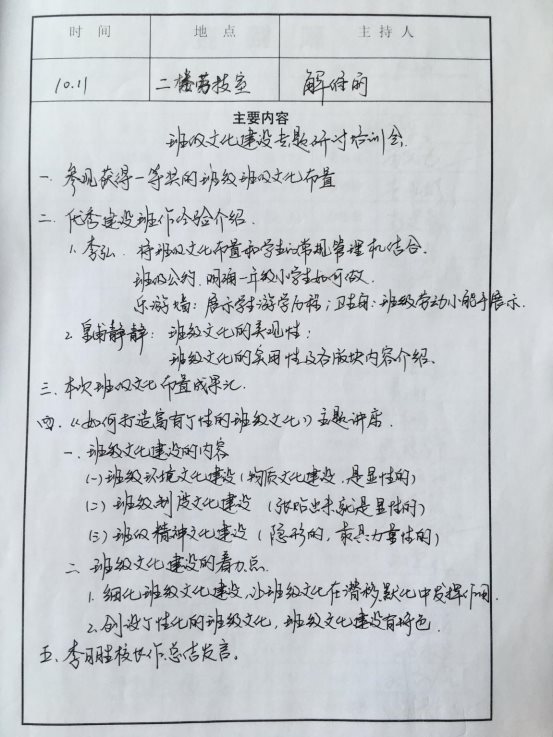 时 间 地 点 主 持 人
10.11 二楼劳技室
主要内容
班级文化建设专题研讨培训会.
一. 参观获得一等奖的班级班级文化布置
二. 优秀建设班作经验介绍.
1. 李弘. 将班级文化布置和学生的常规管理相结合.
班级公约. 明确一年级小学生如何做.
乐游墙: 展示学生游学历程; 卫生角: 班级劳动小能手展示.
2. 皇甫静静: 班级文化的美观性;
班级文化的实用性及各版块内容介绍.
三. 本次班级文化布置成果汇.
四. 《如何打造富有个性的班级文化》主题讲座.
一. 班级文化建设的内容
(一) 班级环境文化建设 (物质文化建设, 是显性的)
(二) 班级制度文化建设 (张贴出来就是显性的)
(三) 班级精神文化建设 (隐形的, 最具力量性的)
二. 班级文化建设的着力点.
1. 细化班级文化建设, 让班级文化在潜移默化中发挥作用.
2. 创设个性化的班级文化, 班级文化建设有特色.
五. 李丽胜校长作总结发言。